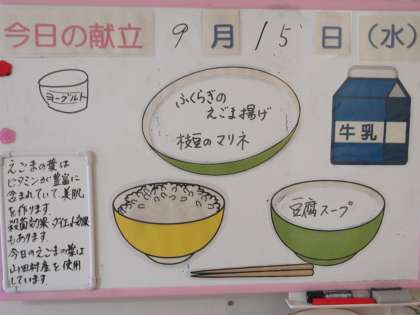 今日の献立 9月15日(水)
ヨーグルト
ふくらぎの
えごま揚げ
枝豆のマリネ
牛乳
豆腐スープ
えごまの葉は
ビタミンが豊富に
含まれていて美肌
を作ります
殺菌効果・ダイエット効果
もあります。
今日のえごまの葉は
山田村産を使用
しています。